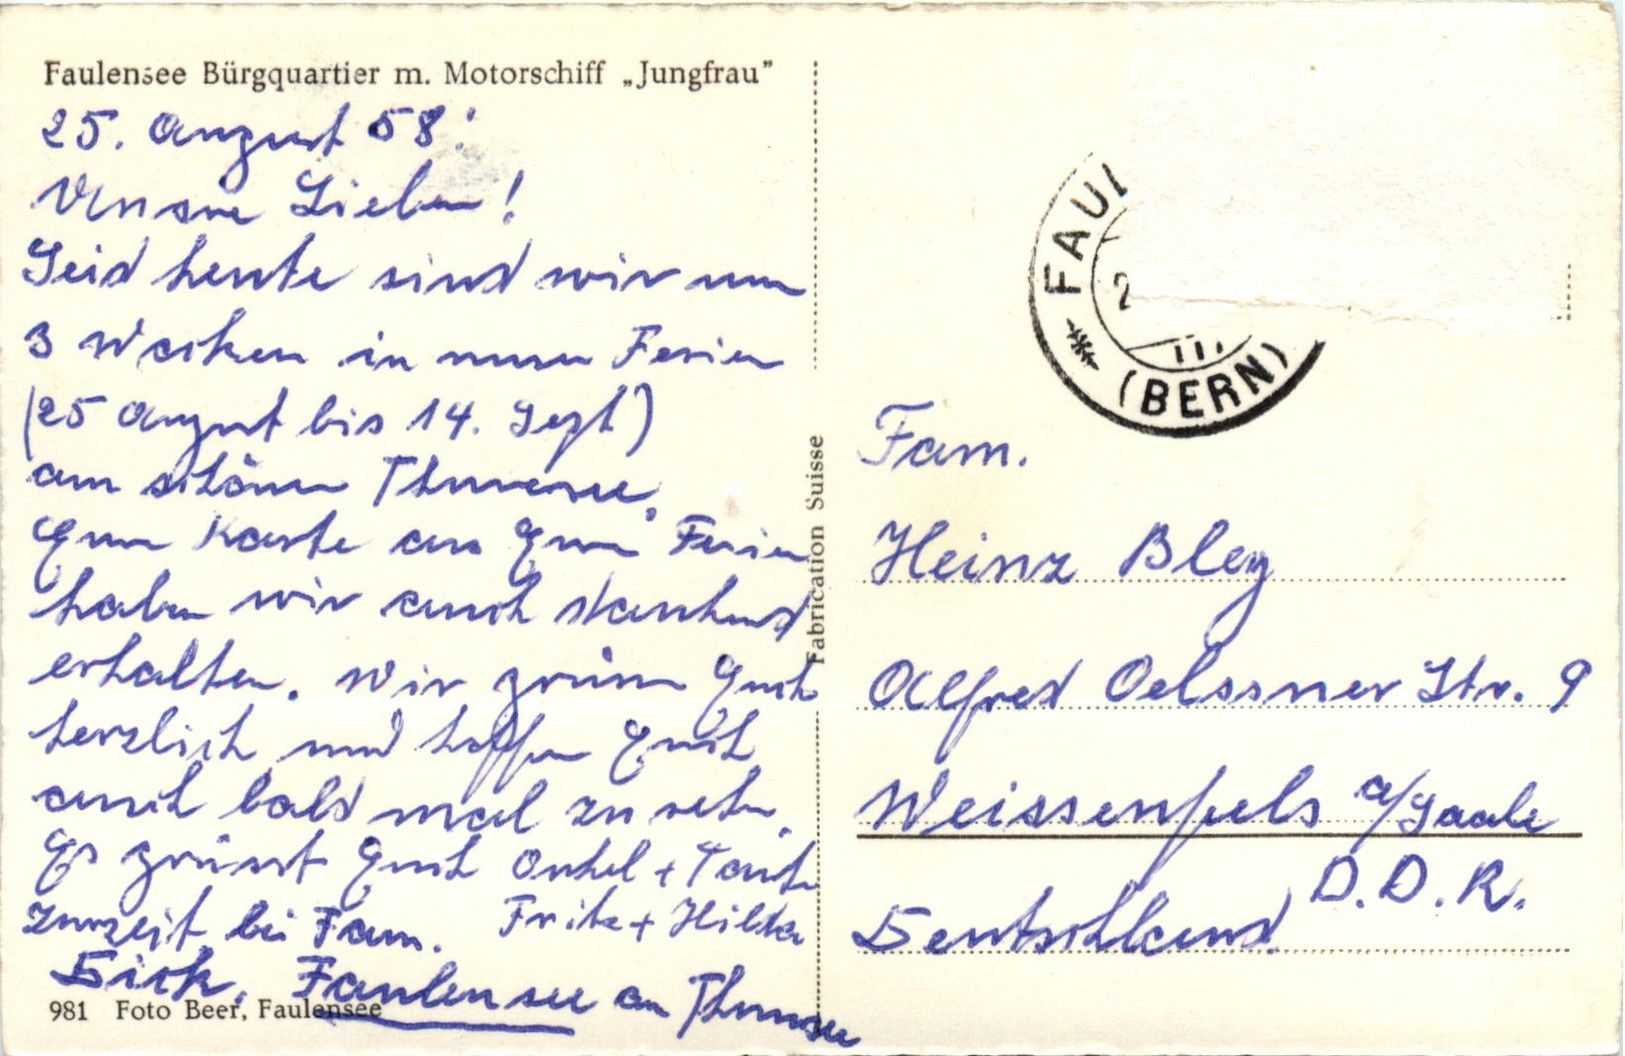 Faulensee Bürgquartier m. Motorschiff „Jungfrau”
25. August 58.
Unsere Lieben!
Seid heute sind wir nun
3 Wochen in unsern Ferien
(25 August bis 14. Sept)
am schönen Thunersee.
Eure Karte aus Euren Ferien
haben wir auch dankend
erhalten. Wir grüssen Euch
herzlich und hoffen Euch
auch bald mal zu sehen.
Es grüsst Euch Onkel + Tante
Fritz + Hilda
Zurzeit bei Fam.
Dick, Faulensee am Thunersee
981 Foto Beer, Faulensee
Fabrication Suisse
FAUL
2
(BERN)
Fam.
Heinz Bley
Alfred Oelssner Str. 9
Weissenfels a/Saale
D.D.R.
Deutschland